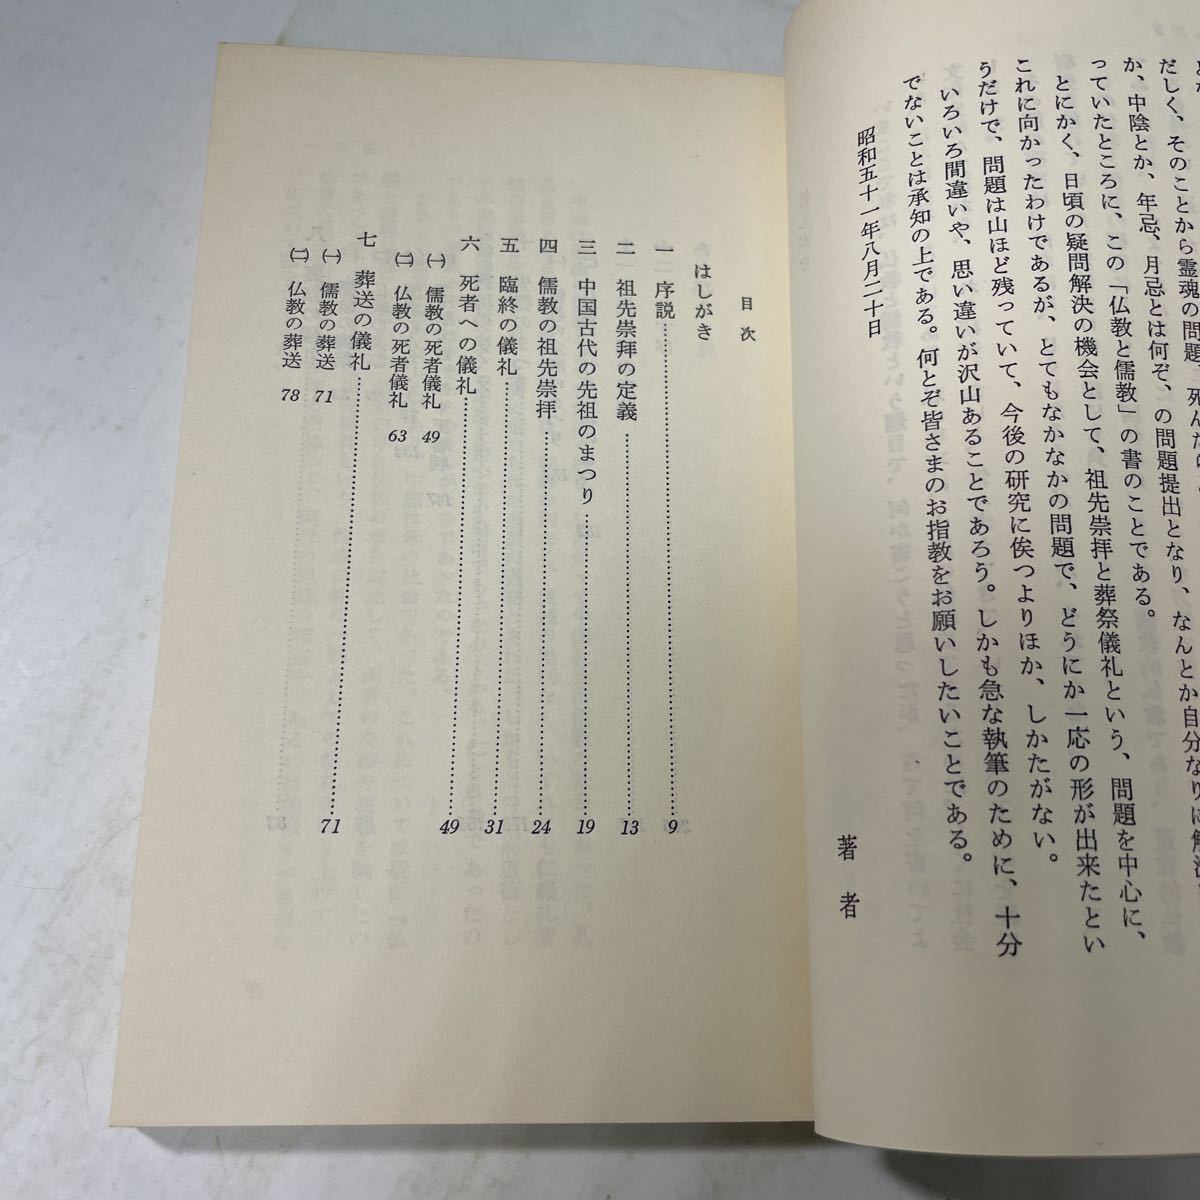 だしく、そのことから霊魂の問題、死んだら
か、中陰とか、年忌、月忌とは何ぞ、の問題提出となり、なんとか自分なりに解決
っていたところに、この「仏教と儒教」の書のことである。
とにかく、日頃の疑問解決の機会として、祖先崇拝と葬祭儀礼という、問題を中心に、
これに向かったわけであるが、とてもなかなかの問題で、どうにか一応の形が出来たとい
うだけで、問題は山ほど残っていて、今後の研究に俟つよりほか、しかたがない。
いろいろ間違いや、思い違いが沢山あることであろう。しかも急な執筆のために、十分
でないことは承知の上である。何とぞ皆さまのお指教をお願いしたいことである。
昭和五十一年八月二十日
著者
目次
はしがき
一 序説……9
二 祖先崇拝の定義……13
三 中国古代の先祖のまつり……19
四 儒教の祖先崇拝……24
五 臨終の儀礼……31
六 死者への儀礼……49
㈠ 儒教の死者儀礼 49
㈡ 仏教の死者儀礼 63
七 葬送の儀礼……71
㈠ 儒教の葬送 71
㈡ 仏教の葬送 78